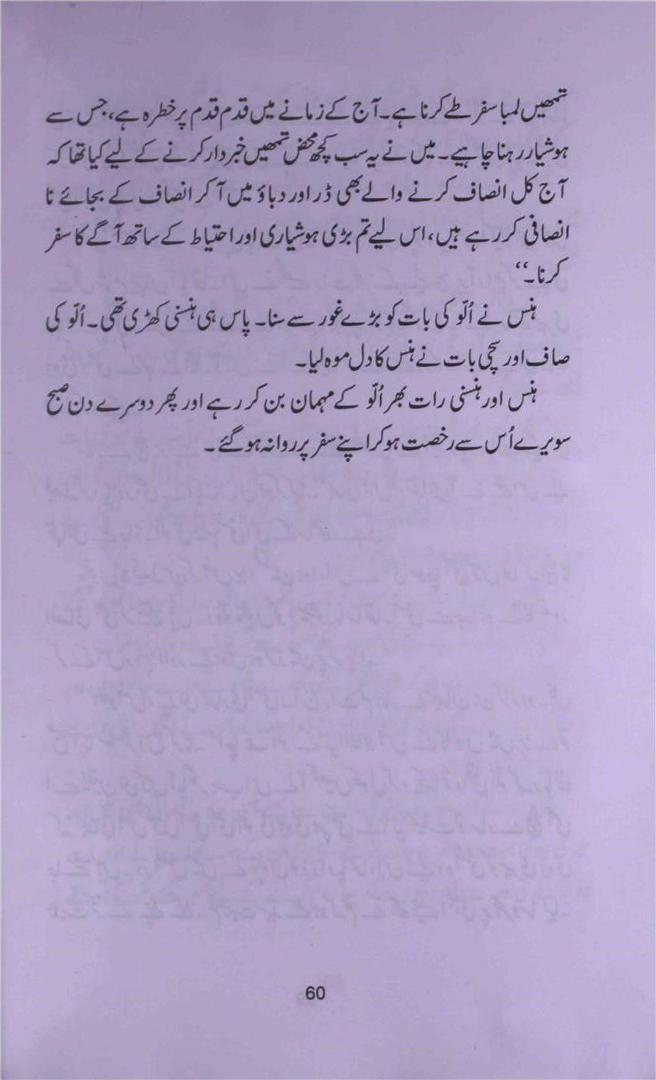 تمھیں لمبا سفر طے کرنا ہے۔ آج کے زمانے میں قدم قدم پر خطرہ ہے، جس سے
ہوشیار رہنا چاہیے۔ میں نے یہ سب کچھ محض تمھیں خبردار کرنے کے لیے کیا تھا کہ
آج کل انصاف کرنے والے بھی ڈر اور دباؤ میں آ کر انصاف کے بجائے نا
انصافی کر رہے ہیں، اس لیے تم بڑی ہوشیاری اور احتیاط کے ساتھ آگے کا سفر
کرنا۔‘‘
ہنس نے اُلّو کی بات کو بڑے غور سے سنا۔ پاس ہی ہنسنی کھڑی تھی۔ اُلّو کی
صاف اور سچی بات نے ہنس کا دل موہ لیا۔
ہنس اور ہنسنی رات بھر اُلّو کے مہمان بن کر رہے اور پھر دوسرے دن صبح
سویرے اُس سے رخصت ہو کر اپنے سفر پر روانہ ہو گئے۔
60